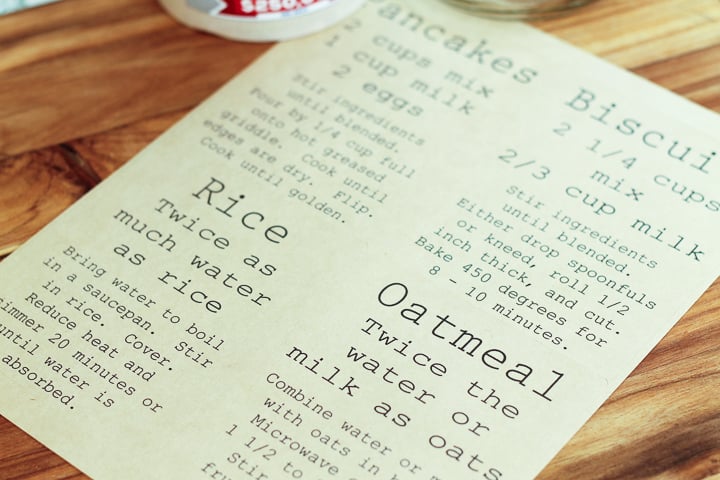 $250,0
ancakes
2 cups mix
1 cup milk
2 eggs
Stir ingredients
until blended.
Pour by 1/4 cup full
onto hot greased
griddle. Cook until
edges are dry. Flip.
Cook until golden.
Biscui
2 1/4 cups
mix
2/3 cup milk
Stir ingredients
until blended.
Either drop spoonfuls
or kneed, roll 1/2
inch thick, and cut.
Bake 450 degrees for
8 - 10 minutes.
Rice
Twice as
much water
as rice
Bring water to boil
in a saucepan. Stir
in rice. Cover.
Reduce heat and
simmer 20 minutes or
until water is
absorbed.
Oatmeal
Twice the
water or
milk as oats
Combine water or m
with oats in b
Microwave
1 1/2 to
Stir
fru